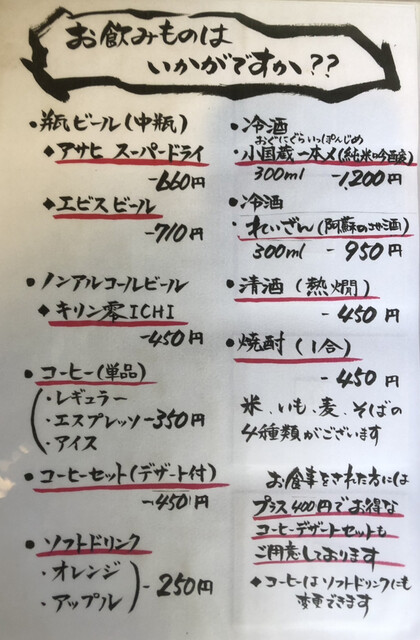 お飲みものは
いかがですか??
●瓶ビール(中瓶)
◆アサヒ スーパードライ
-660円
◆エビスビール
-710円
●ノンアルコールビール
◆キリン零ICHI
-450円
●コーヒー(単品)
・レギュラー
・エスプレッソ-350円
・アイス
●コーヒーセット(デザート付)
-450円
●ソフトドリンク
・オレンジ
・アップル
-250円
●冷酒
おぐにぐらいっぽんじめ
・小国蔵一本〆(純米吟醸)
300ml -1,200円
●冷酒
・れいざん(阿蘇の地酒)
300ml - 950円
●清酒(熱燗)
- 450円
●焼酎(1合)
- 450円
米、いも、麦、そばの
4種類がございます
お食事をされた方には
プラス400円でお得な
コーヒーデザートセットも
ご用意しております
◆コーヒーはソフトドリンクにも
変更できます